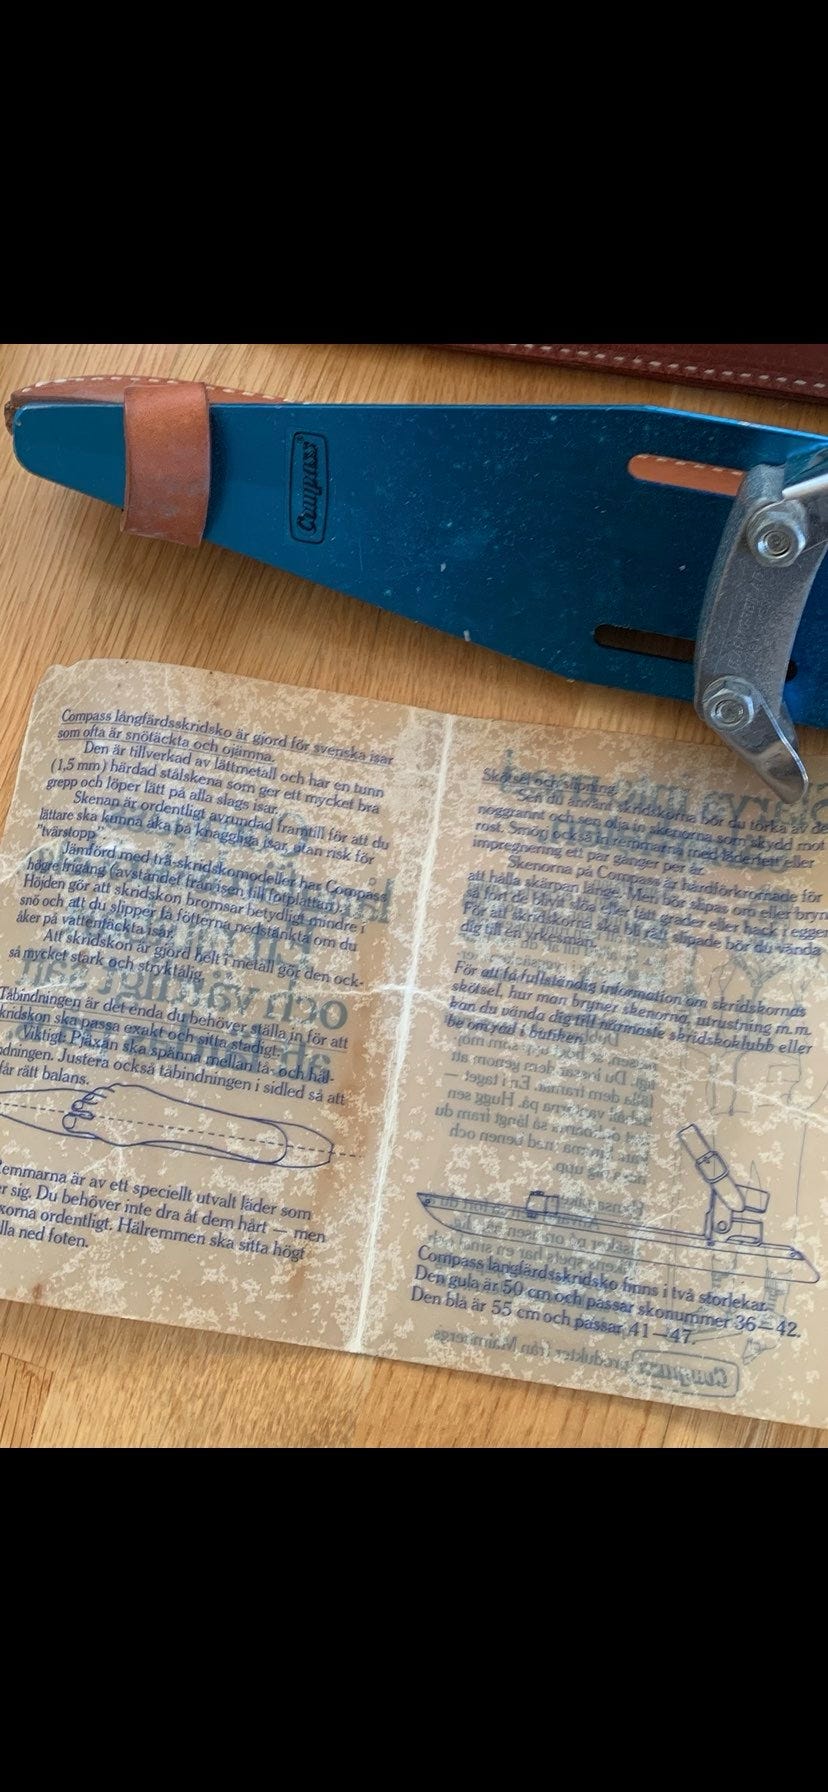 Compass
Compass långfärdsskridsko är gjord för svenska isar
som ofta är snötäckta och ojämna.
Den är tillverkad av lättmetall och har en tunn
(1,5 mm) härdad stålskena som ger ett mycket bra
grepp och löper lätt på alla slags isar.
Skenan är ordentligt avrundad framtill för att du
lättare ska kunna åka på knaggliga isar, utan risk för
"tvärstopp".
Jämförd med trä-skridskomodeller har Compass
högre frigång (avståndet från isen till fotplattan).
Höjden gör att skridskon bromsar betydligt mindre i
snö och att du slipper få fötterna nedstänkta om du
åker på vattentäckta isar.
Att skridskon är gjord helt i metall gör den ock-
så mycket stark och stryktålig.
Tåbindningen är det enda du behöver ställa in för att
kridskon ska passa exakt och sitta stadigt.
Viktigt: Pjäxan ska spänna mellan tå- och häl-
dningen. Justera också tåbindningen i sidled så att
får rätt balans.
emmarna är av ett speciellt utvalt läder som
r sig. Du behöver inte dra åt dem hårt — men
xorna ordentligt. Hälremmen ska sitta högt
lla ned foten.
Skötsel och slipning.
Sen du använt skridskorna bör du torka av de
noggrannt och sen olja in skenorna som skydd mot
rost. Smörj också in remmarna med läderfett eller
impregnering ett par gånger per år.
Skenorna på Compass är hårdförkromade för
att hålla skärpan länge. Men bör slipas om eller bryn
så fort de blivit slöa eller fått grader eller hack i eggen
För att skridskorna ska bli rätt slipade bör du vända
dig till en yrkesman.
För att få fullständig information om skridskornas
skötsel, hur man bryner skenorna, utrustning m.m.
kan du vända dig till närmaste skridskoklubb eller
be om råd i butiken.
Compass långfärdsskridsko finns i två storlekar.
Den gula är 50 cm och passar skonummer 36—42.
Den blå är 55 cm och passar 41—47.